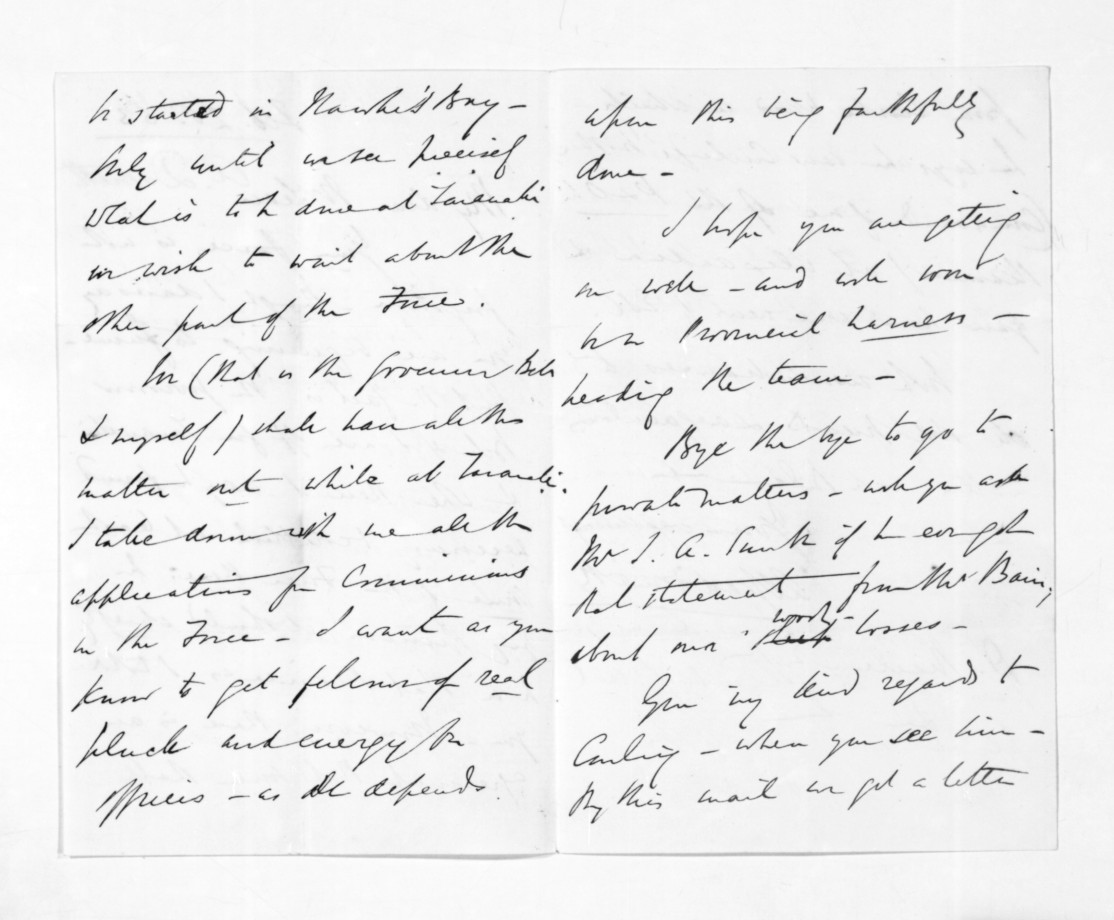 be started in Hawke's Bay -
Only until we see precisely
what is to be done at Taranaki
we wish to wait about the
other part of the Force.
We (that is the Governor Bell
& myself) shall have all this
matter out while at Taranaki.
I take down with me all the
applications for Commissions
in the Force - I want as you
know to get fellows of real
pluck and energy for
officers - as all depends
upon this being faithfully
done -
I hope you are getting
on well - and will soon
be in Provincial harness -
heading the team -
Bye the bye to go to
private matters - will you ask
Mr J. A. Smith if he ever got
that statement from Mr Bain,
about our wool losses -
Give my kind regards to
when you see him -
By this mail we got a letter